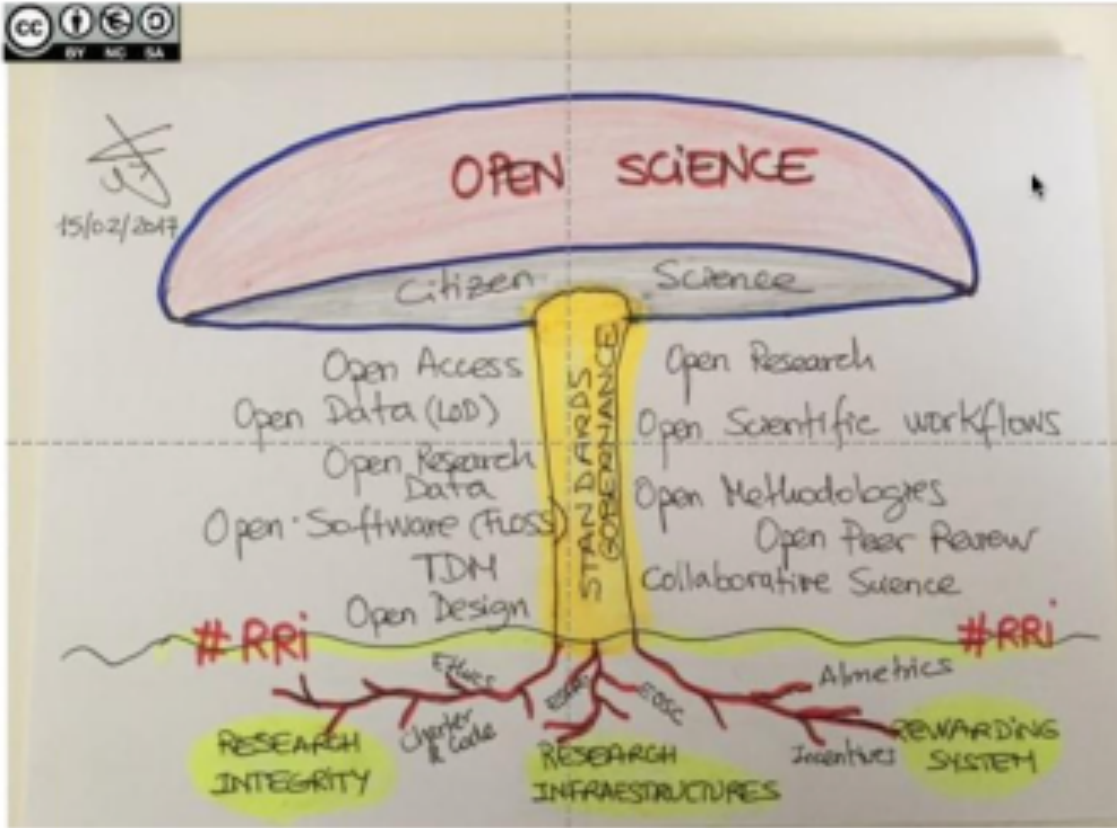 cc BY NC SA
15/02/2017
OPEN SCIENCE
Citizen Science
STANDARDS
GOBERNANCE
Open Access
Open Data (LOD)
Open Research
Data
Open Software (FLOSS)
TDM
Open Design
Open Research
Open Scientific workflows
Open Methodologies
Open Peer Review
Collaborative Science
#RRi
#RRi
Ethics
Charter
& Code
RESEARCH
INTEGRITY
EOSC
RESEARCH
INFRAESTRUCTURES
Almetrics
Incentives
REWARDING
SYSTEM